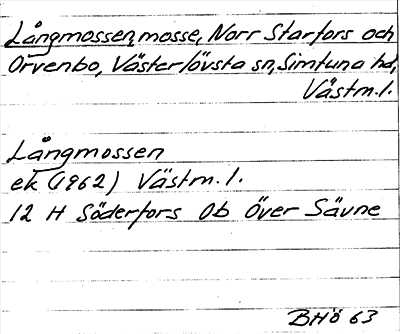 Långmossen, mosse, Norr Starfors och
Orvenbo, Västerlövsta sn, Simtuna hd,
Västm. l.
Långmossen
ek (1962) Västm. l.
12 H Söderfors 0b Över Sävne
BHö 63